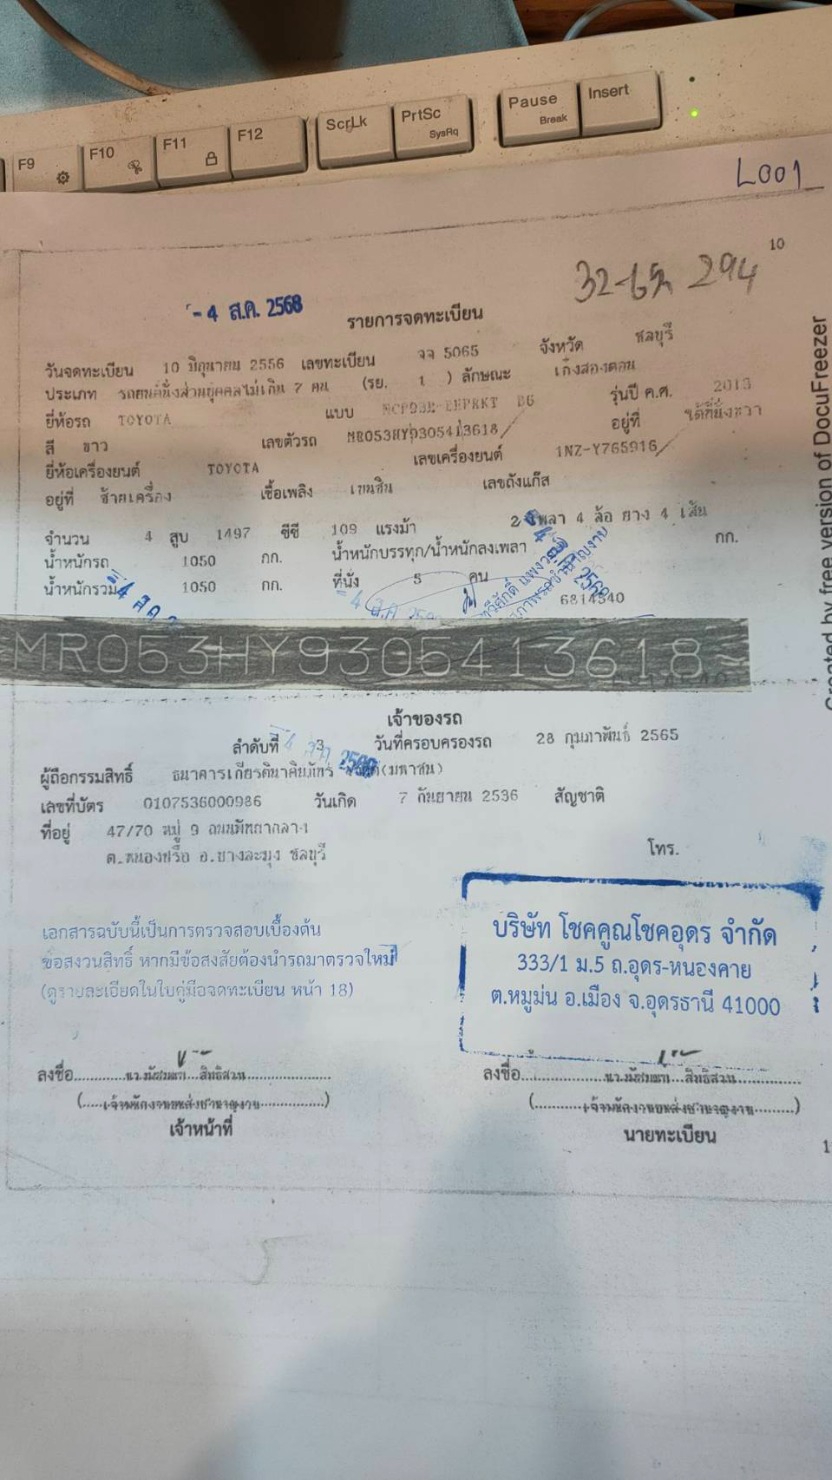 F9 F10 F11 F12 ScrLk PrtSc SysRq Pause Break Insert
L001
10
32-
294
- 4 ส.ค. 2568
รายการจดทะเบียน
วันจดทะเบียน 10 มิถุนายน 2556 เลขทะเบียน จจ 5065 จังหวัด ชลบุรี
ประเภท รถยนต์นั่งส่วนบุคคลไม่เกิน 7 คน (รย. 1 ) ลักษณะ เก๋งสองตอน
ยี่ห้อรถ TOYOTA แบบ รุ่นปี ค.ศ. 2013
สี ขาว เลขตัวรถ MR053HY9305413618 อยู่ที่ ใต้ที่นั่งขวา
ยี่ห้อเครื่องยนต์ TOYOTA เลขเครื่องยนต์ 1NZ-Y765916
อยู่ที่ ซ้ายเครื่อง เชื้อเพลิง เบนซิน เลขถังแก๊ส
จำนวน 4 สูบ 1497 ซีซี 109 แรงม้า 2 เพลา 4 ล้อ ยาง 4 เส้น
น้ำหนักรถ 1050 กก. น้ำหนักบรรทุก/น้ำหนักลงเพลา กก.
น้ำหนักรวม 1050 กก. ที่นั่ง 5 คน
6814540
MR053HY9305413618
เจ้าของรถ
ลำดับที่ 3 วันที่ครอบครองรถ 28 กุมภาพันธ์ 2565
ผู้ถือกรรมสิทธิ์ ธนาคารเกียรตินาคินภัทร จำกัด(มหาชน)
เลขที่บัตร 0107536000986 วันเกิด 7 กันยายน 2536 สัญชาติ
ที่อยู่ 47/70 หมู่ 9 ถนนพัทยากลาง
ต.หนองปรือ อ.บางละมุง ชลบุรี
โทร.
เอกสารฉบับนี้เป็นการตรวจสอบเบื้องต้น
ขอสงวนสิทธิ์ หากมีข้อสงสัยต้องนำรถมาตรวจใหม่
(ดูรายละเอียดในใบคู่มือจดทะเบียน หน้า 18)
บริษัท โชคคูณโชคอุดร จำกัด
333/1 ม.5 ถ.อุดร-หนองคาย
ต.หมูม่น อ.เมือง จ.อุดรธานี 41000
ลงชื่อ
(เจ้าพนักงานขนส่งชำนาญงาน)
เจ้าหน้าที่
ลงชื่อ
(เจ้าพนักงานขนส่งชำนาญงาน)
นายทะเบียน
Created by free version of DocuFreezer